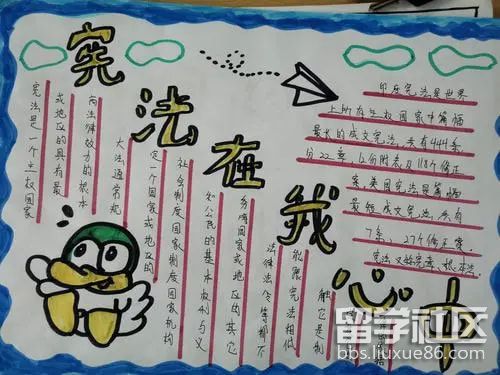 宪法在我心中
宪法是一个主权国家
或地区的具有最
高法律效力的根本
大法通常规
定一个国家或地区的
社会制度国家制度国家机构
和公民的基本权利与义
务等国家或地区的其它
法律法令等都不
能跟宪法相低
触它是制
印度宪法是世界
上所有主权国家中篇幅
最长的成文宪法,共有444条
分22章,12份附表及118个修正
案,美国宪法是篇幅
最短成文宪法,共有
7条,27个修正案
宪法又称宪章、根本法
留学社区
bbs.liuxue86.com